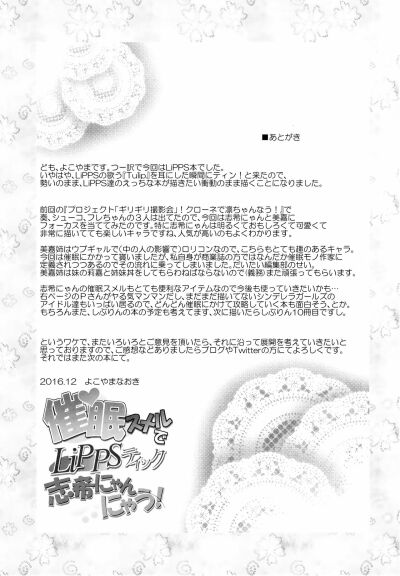 ■あとがき
ども、よこやまです。つー訳で今回はLiPPS本でした。
いやはや、LiPPSの歌う『Tulip』を耳にした瞬間にティン！と来たので、
勢いのまま、LiPPS達のえっちな本が描きたい衝動のまま描くことになりました。
前回の『プロジェクト「ギリギリ撮影会」！クローネで凛ちゃんなう！』で
奏、シューコ、フレちゃんの3人は出てたので、今回は志希にゃんと美嘉に
フォーカスを当ててみたのです。特に志希にゃんは明るくておもしろくて可愛くて
非常に描いてても楽しいキャラですね、人気が高いのもよくわかります。
美嘉姉はウブギャルで(中の人の影響で)ロリコンなので、こちらもとても趣のあるキャラ。
今回は催眠にかかって貰いましたが、私自身が商業誌の方ではなんだか催眠モノ作家に
定義されつつあるのでその流れに乗ってしまいました。だいたい編集部のせい。
美嘉姉は妹の莉嘉と姉妹丼をしてもらわねばならないので(義務)また頑張ってもらいます。
志希にゃんの催眠スメルもとても便利なアイテムなので今後も使っていきたいかも…
右ページのPさんがやる気マンマンだし、まだまだ描いてないシンデレラガールズの
アイドル達もいっぱい居るので、どんどん催眠にかけて攻略していく本も面白そう、とか。
もちろんまた、しぶりんの本の予定も考えてます、次に描いたらしぶりん10冊目ですし。
というワケで、またいろいろとご意見を頂いたら、それに沿って展開を考えていきたいと
思っておりますので、ご感想などありましたらブログやTwitterの方にてよろしくです。
それではまた次の本にて。
2016.12　よこやまなおき
催眠スメルで
LiPPSティック
志希にゃん
にゃう！